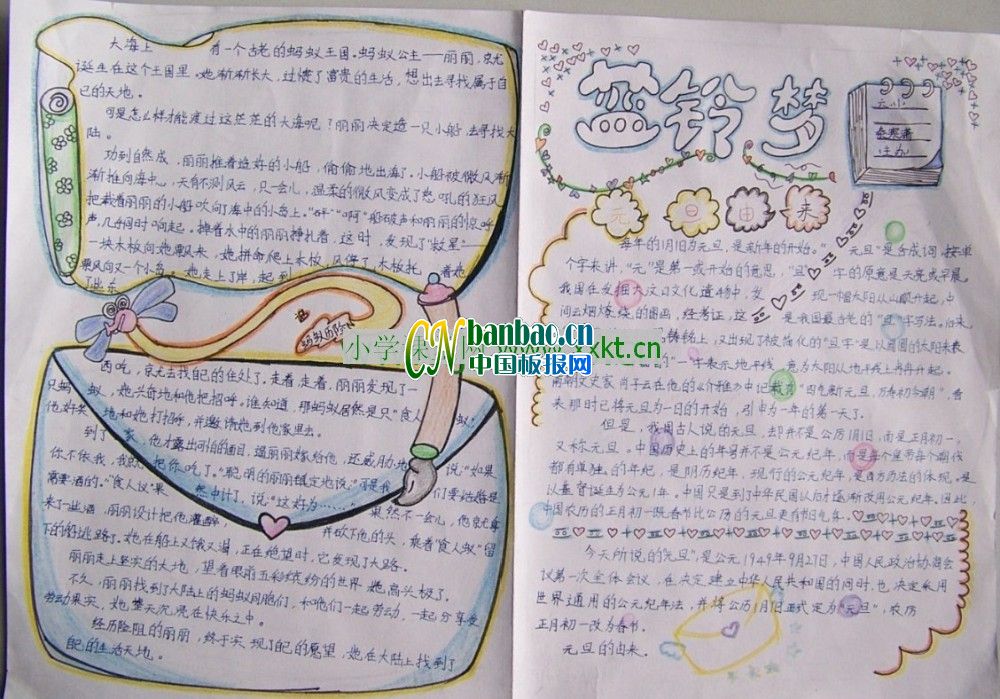 大海上 有一个古老的蚂蚁王国。蚂蚁公主——丽丽,就
诞生在这个王国里。她渐渐长大,过惯了富贵的生活,想出去寻找属于自
己的天地。
可是怎么样才能渡过这茫茫的大海呢?丽丽决定造一只小船去寻找大
陆。
功到自然成,丽丽推着造好的小船,偷偷地出海了。小船被微风渐
渐推向海中心,天有不测风云,只一会儿,温柔的微风变成了怒吼的狂风
把载着丽丽的小船吹向了海中的小岛上。"砰""啊"船破声和丽丽的惊呼
声,几乎同时响起。掉在水中的丽丽挣扎着,这时,发现了"救星"——
一块木板向她飘来,她拼命爬上木板,风停了,木板托 着她
乘风向又一个小岛。她走上了岸,起到
了出东
蚂蚁历险
西吃,就先去找自己的住处了。走着,走着,丽丽发现了一
只蚂 蚁,她兴奋地和他把招呼。谁知道,那蚂蚁居然是只"食人 蚁!
他好客 地和她打招呼,并邀请她到他家里去。
到了 家,他才露出可怕的面目,逼丽丽嫁给他,还威胁地 说:"如果
你不依我,我就 把你吃了。"聪明的丽丽镇定地说:"可是我 们要结婚是
需要酒的。"食人蚁"果 然中计了,说:"这好办……" 果然不一会儿,他就拿
来了一些酒,丽丽设计把他灌醉, 并砍下他的头,乘着"食人蚁"留
下的船逃路了。她在船上又饿又渴,正在绝望时,它发现了大路。
丽丽走上坚实的大地,望着眼前五彩缤纷的世界,她高头极了。
不久,丽丽找到了大陆上的蚂蚁同胞们,和他们一起劳动,一起分享受
劳动果实,她整天沉浸在快乐之中。
经历险阻的丽丽,终于实现了自己的愿望,她在大陆上找到了
自己的生活天地。
蓝铃梦
云小
佘思清
主办
元旦由来
每年的1月1日为元旦,是新年的开始。" 元旦"是合成词,按单
个字来讲,"元"是第一或开始的意思,"旦" 字的原意是天亮或早晨。
我国在发掘大汶口文化遗物中,发 现一幅太阳从山巅升起,中
间云烟缭绕的图画,经考证,这 是我国最古老的"旦"字写法。后来
铸铭上,又出现了被简化的"旦字"是以圆圆的太阳来表
"一"表示地平线,意为太阳从地平线上冉冉升起。
南朝文史家肖子云在他的《介雅》中记载为"四气新元旦,万寿初今朝",看
来那时已将元旦为一日的开始,引申为一年的第一天了。
但是,我国古人说的元旦,却并不是公历1月1日,而是正月初一,
又称元旦。中国历史上的年号并不是公元纪年,而是每个皇帝每个朝代
都有单独的年纪,是明历纪年,现行的公元纪年,是西方历法的体现,是
以基督诞生为公元1年。中国只是到了中华民国以后才逐渐改用公元纪年。因此,
中国农历的正月初一既春节比公历的元旦更有节日气氛。
今天所说的"元旦",是公元1949年9月27日,中国人民政治协商会
议第一次全体会议,在决定建立中华人民共和国的同时,也决定采用
世界通用的公元纪年法,并将公历1月1日正式定为"元旦",农历
正月初一改为春节。
元旦的由来。
CN banbao.cn
中国板报网
小学课 网 www. xxkt.cn